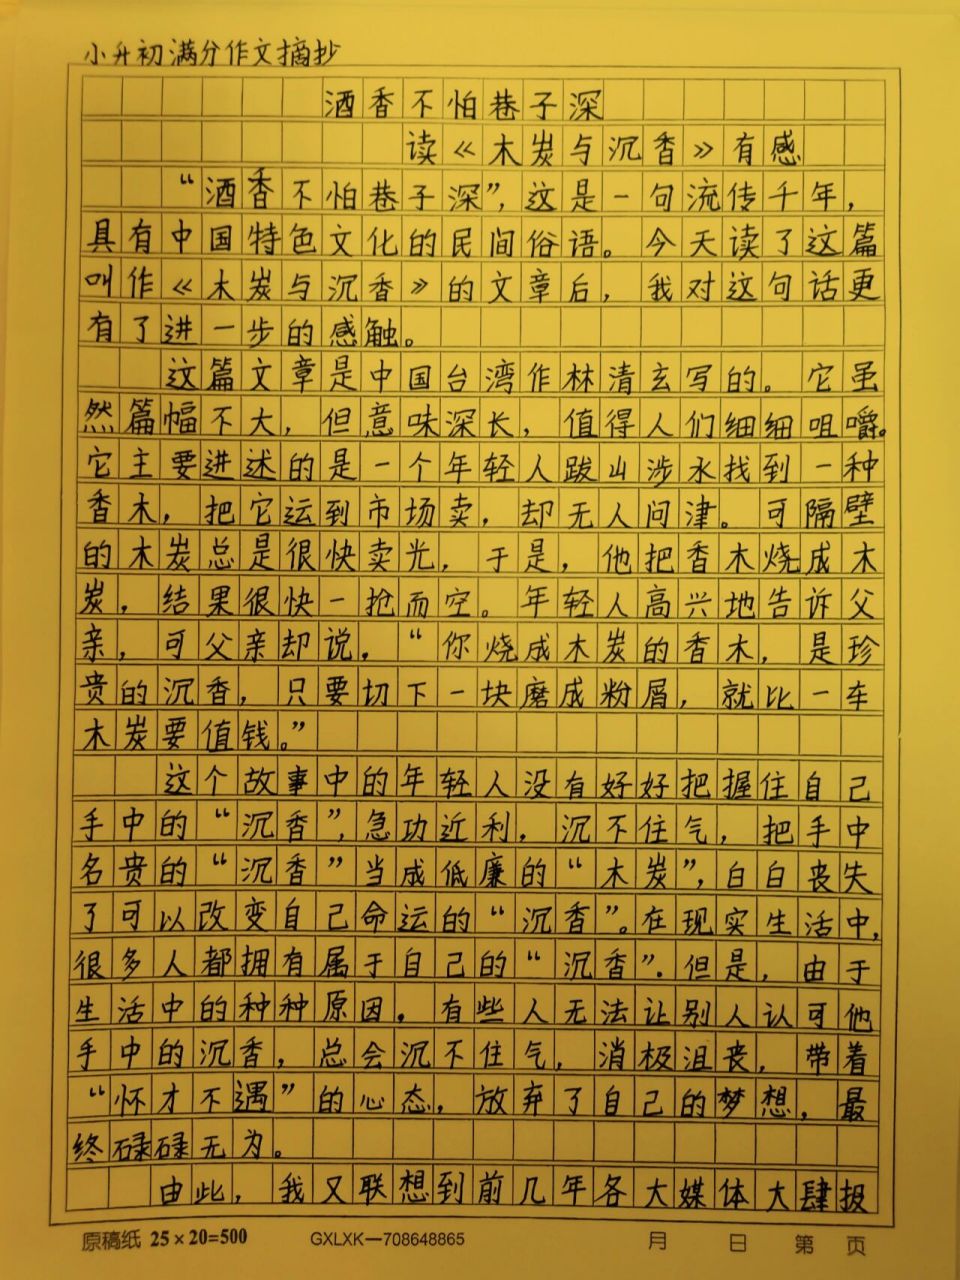 小升初满分作文摘抄
酒香不怕巷子深
读《木炭与沉香》有感
“酒香不怕巷子深”，这是一句流传千年，
具有中国特色文化的民间俗语。今天读了这篇
叫作《木炭与沉香》的文章后，我对这句话更
有了进一步的感触。
这篇文章是中国台湾作林清玄写的。它虽
然篇幅不大，但意味深长，值得人们细细咀嚼。
它主要讲述的是一个年轻人跋山涉水找到一种
香木，把它运到市场卖，却无人问津。可隔壁
的木炭总是很快卖光，于是，他把香木烧成木
炭，结果很快一抢而空。年轻人高兴地告诉父
亲，可父亲却说，“你烧成木炭的香木，是珍
贵的沉香，只要切下一块磨成粉屑，就比一车
木炭要值钱。”
这个故事中的年轻人没有好好把握住自己
手中的“沉香”，急功近利，沉不住气，把手中
名贵的“沉香”当成低廉的“木炭”，白白丧失
了可以改变自己命运的“沉香”。在现实生活中，
很多人都拥有属于自己的“沉香”．但是，由于
生活中的种种原因，有些人无法让别人认可他
手中的沉香，总会沉不住气，消极沮丧，带着
“怀才不遇”的心态，放弃了自己的梦想，最
终碌碌无为。
由此，我又联想到前几年各大媒体大肆报
原稿纸 25×20=500 GXLXK—708648865 月 日 第 页